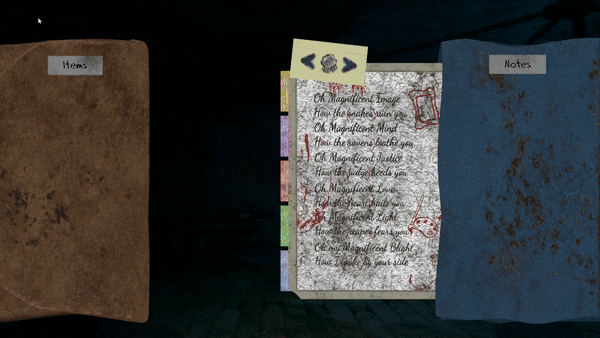 Items
Notes
Oh Magnificent Image
How the snakes ruin you
Oh Magnificent Mind
How the ravens loathe you
Oh Magnificent Justice
How the judge heeds you
Oh Magnificent Love
How the heart hails you
Oh Magnificent Light
How the reaper fears you
Oh my Magnificent Blight
How I by your side